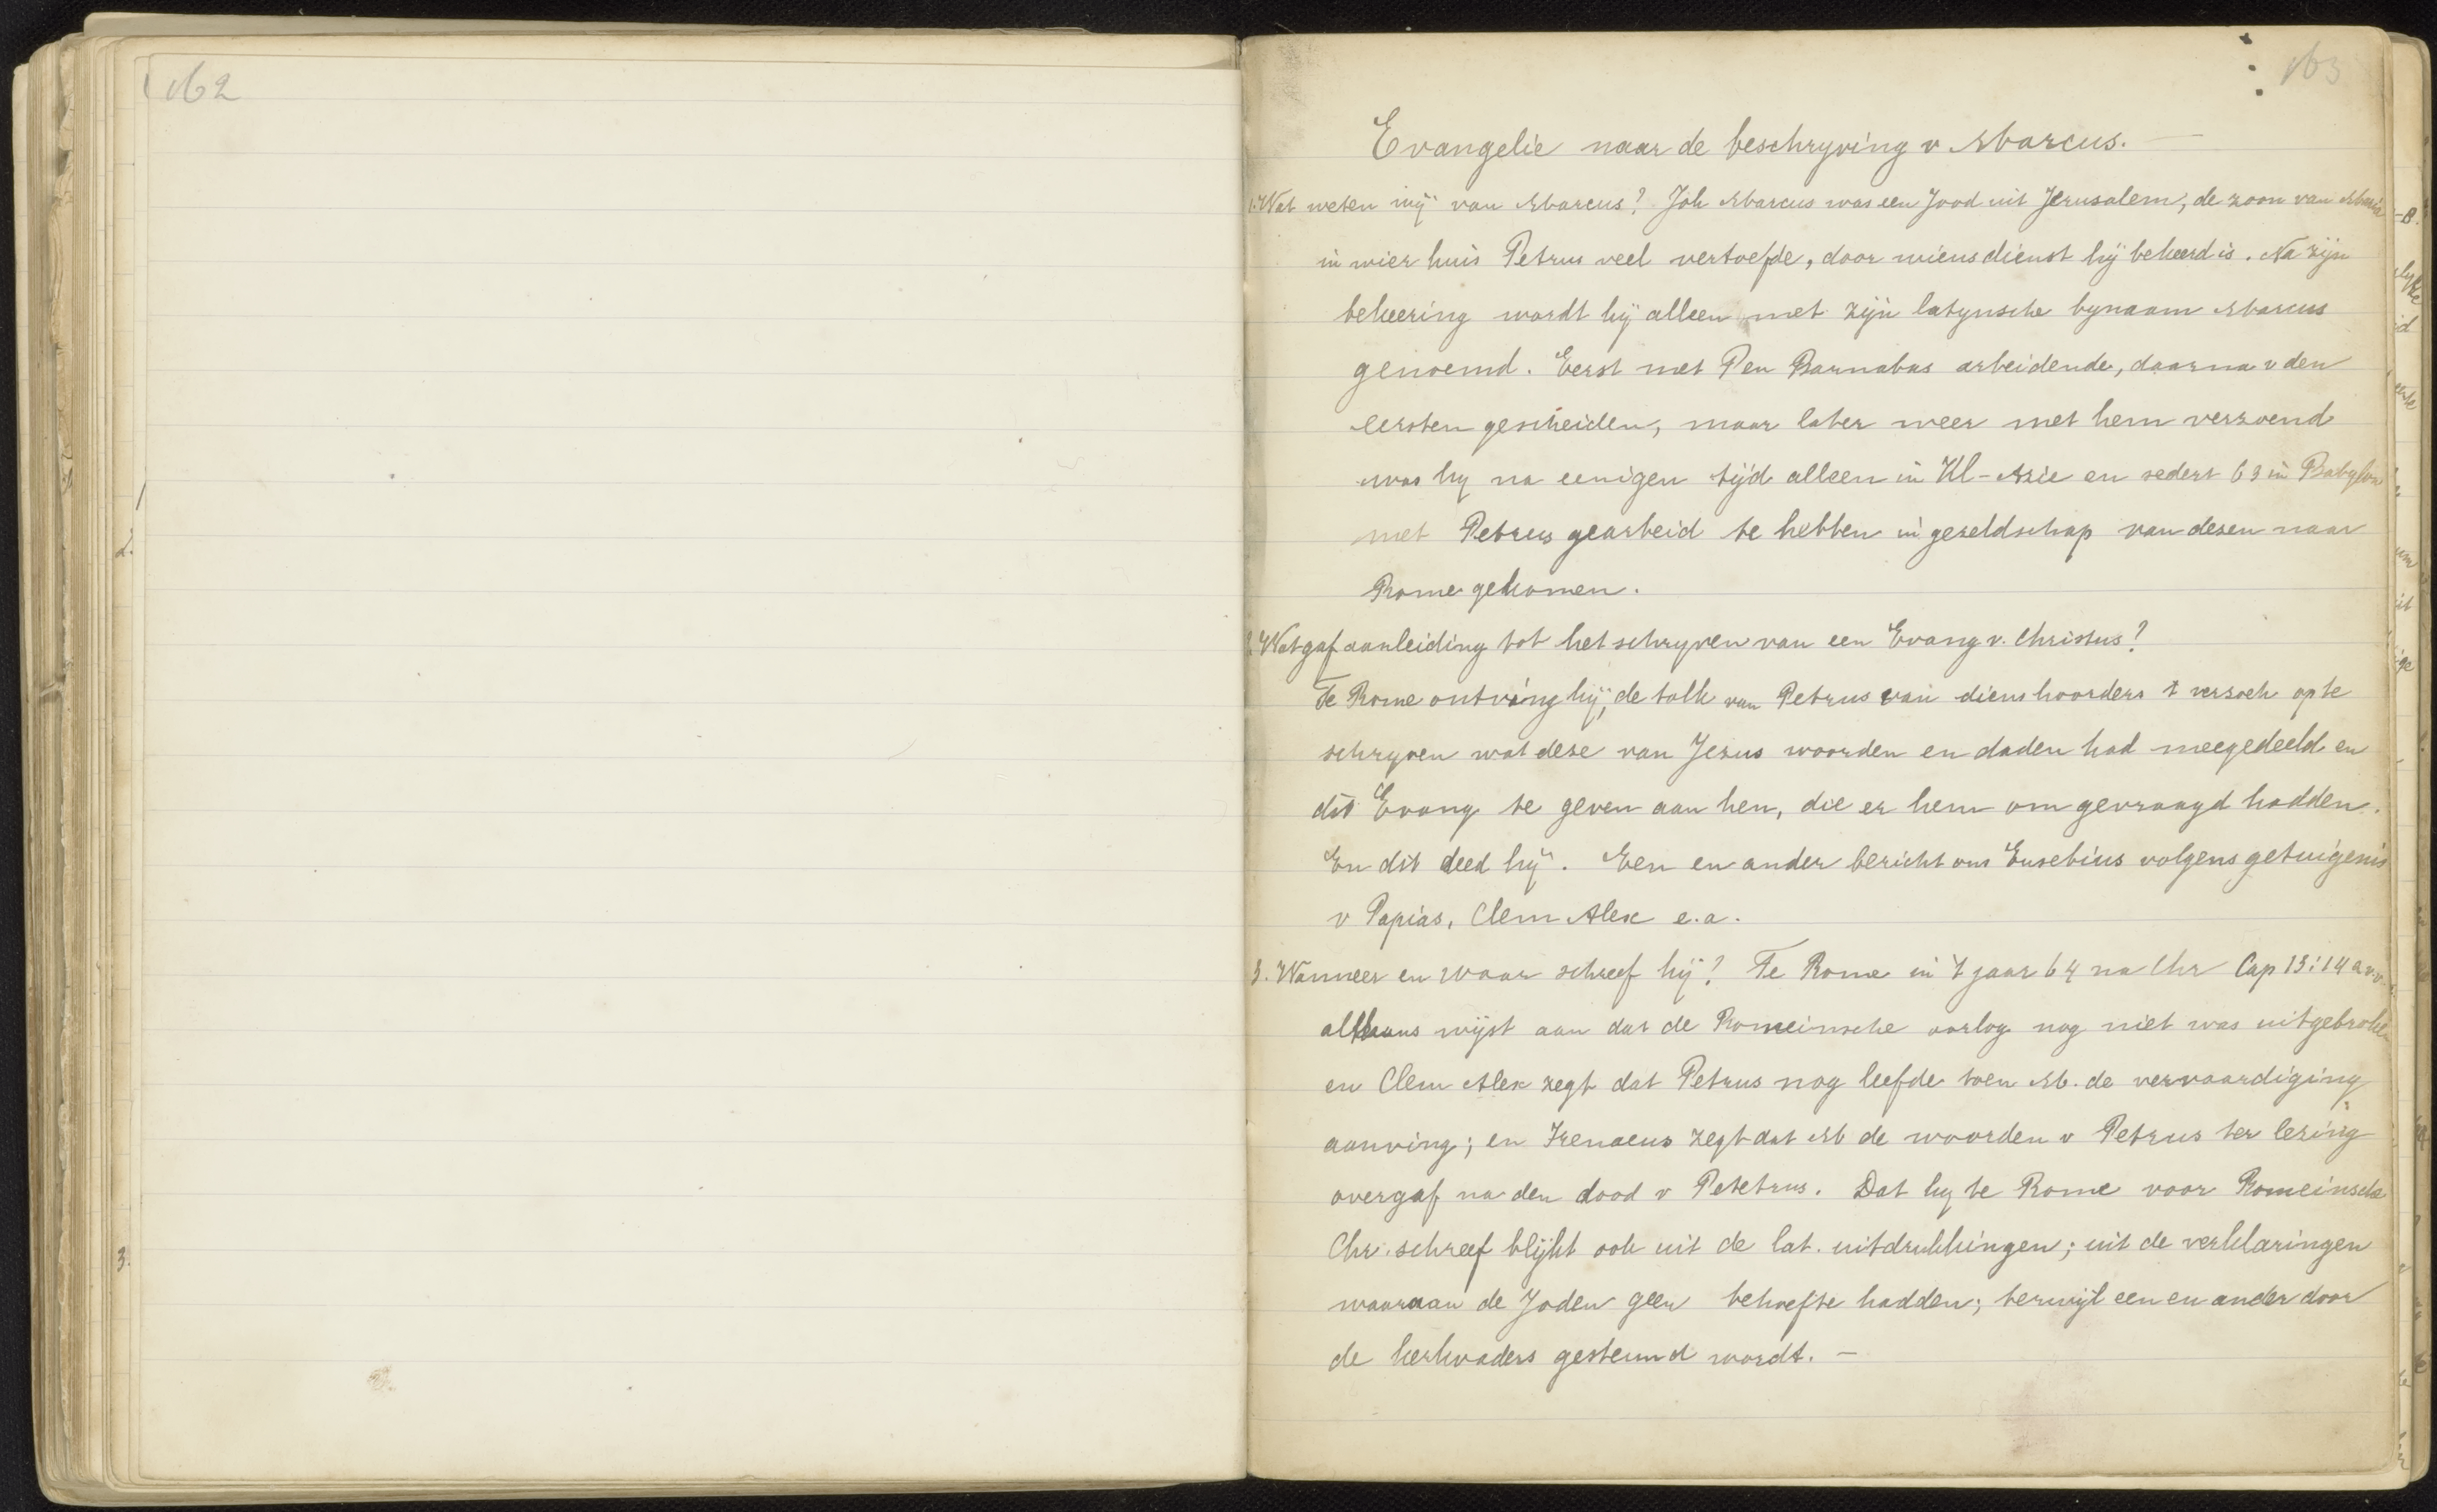 162
163
Evangelie naar de beschryving v Marcus. —
1. Wat weten wij van Marcus? Joh Marcus was een Jood uit Jerusalem, de zoon van Maria
in wier huis Petrus veel vertoefde, door wiens dienst hij bekeerd is. Na zijn
bekeering wordt hij alleen met zijn latynsche bynaam Marcus
genoemd. Eerst met P en Barnabas arbeidende, daarna v den
eersten gescheiden, maar later weer met hem verzoend
was hy na eenigen tijd alleen in Kl-Azie en sedert 63 in Babylon
met Petrus gearbeid te hebben in gezeldschap van dezen naar
Rome gekomen.
2. Wat gaf aanleiding tot het schryven van een Evang v. Christus?
Te Rome ontving hij, de tolk van Petrus van diens hoorders t verzoek op te
schryven wat deze van Jezus woorden en daden had meegedeeld en
dit Evang te geven aan hen, die er hem om gevraagd hadden.
En dit deed hij. Een en ander bericht ons Eusebius volgens getuigenis
v Papias, Clem Alex e.a.
3. Wanneer en waar schreef hij? Te Rome in 't jaar 64 na Chr Cap 13:14 a.v.v.
althans wijst aan dat de Romeinsche oorlog nog niet was uitgebroken
en Clem Alex zegt dat Petrus nog leefde toen M. de vervaardiging
aanving; en Irenaeus zegt dat M de woorden v Petrus ter lezing
overgaf na den dood v Petetrus. Dat hy te Rome voor Romeinsche
Chr. schreef blijkt ook uit de lat. uitdrukkingen; uit de verklaringen
waaraan de Joden geen behoefte hadden; terwijl een en ander door
de kerkvaders gesteund wordt. —
1
2.
3.